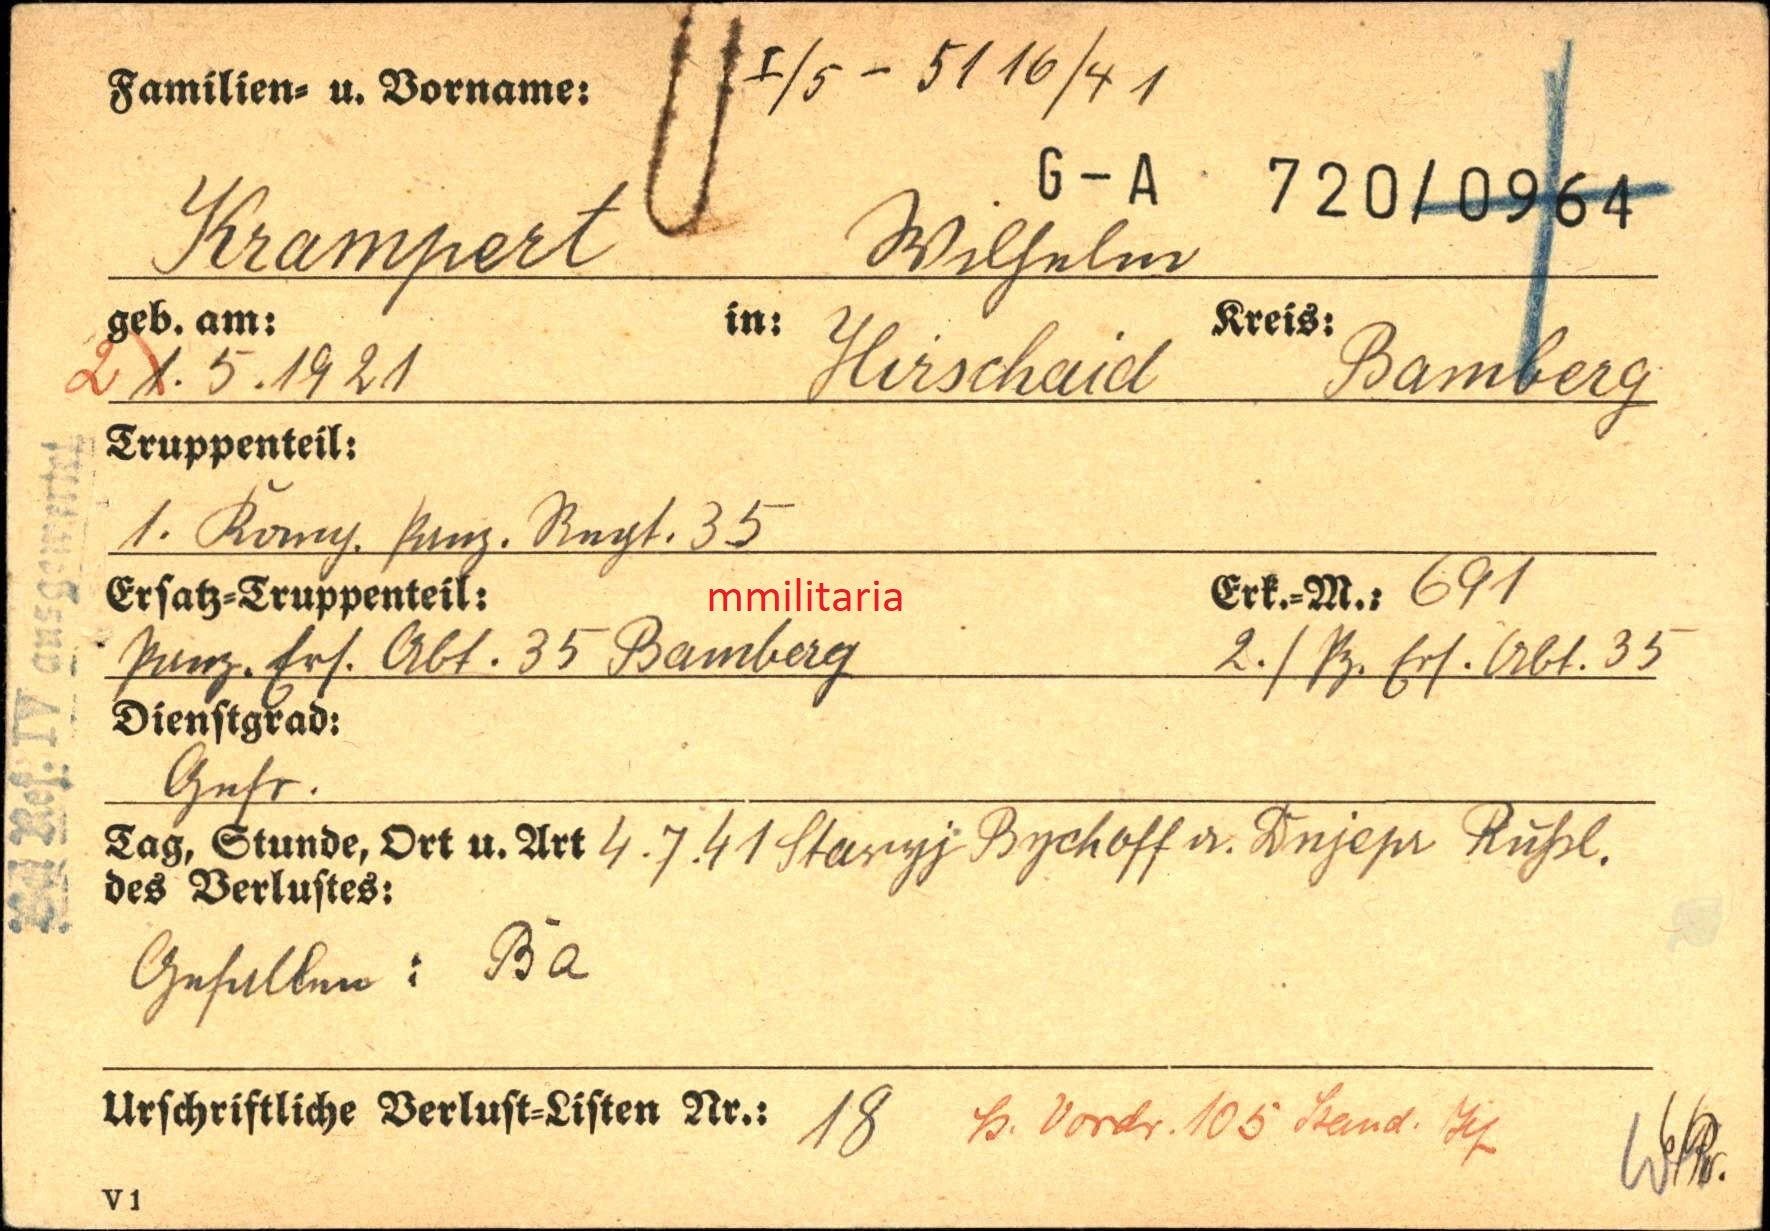 Familien- u. Vorname: I/5 - 5116/41
G-A 720/0964
Krampert Wilhelm
geb. am: in: Kreis:
2 1. 5. 1921 Hirschaid Bamberg
Truppenteil:
1. Komp. Panz. Regt. 35
Ersatz-Truppenteil: mmilitaria Erk.-M.: 691
Panz. Ers. Abt. 35 Bamberg 2./Pz. Ers. Abt. 35
Dienstgrad:
Gefr.
Tag, Stunde, Ort u. Art 4.7.41 Staryj Bychoff a. Dnjepr Rußl.
des Verlustes:
Gefallen: Ba
Urschriftliche Verlust-Listen Nr.: 18 Vordr. 105
V1
Ref. IV ausgewertet